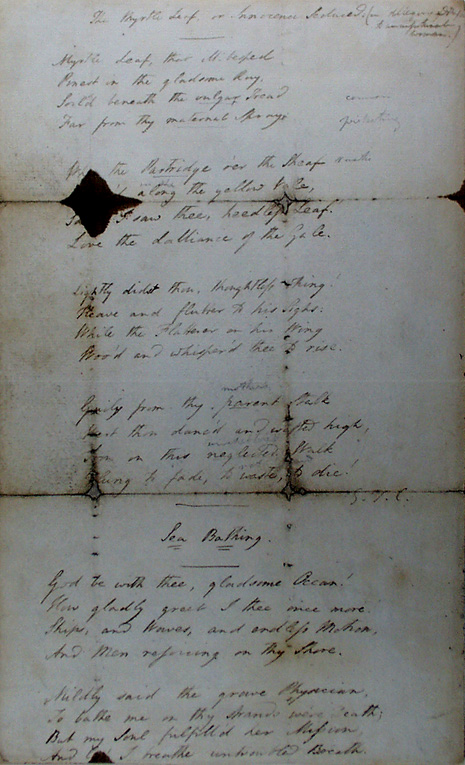 The Myrtle Leaf, or Innocence Seduced.
Myrtle Leaf, that Ill besped
Pinest in the gladsome Ray,
Soil'd beneath the vulgar Tread
Far from thy maternal Spray.
common
protecting
When the Partridge o'er the Sheaf
along the yellow Vale,
I saw thee, heedless Leaf.
Love the dalliance of the Gale.
Lightly didst thou, thoughtless Thing!
Heave and flutter to his Sighs.
While the Flatterer on his Wing
Woo'd and whisper'd thee to rise.
mother
Gaily from thy parent Stalk
Wert thou danc'd and wafted high,
Soon on this neglected Walk
Flung to fade, to waste, to die!
S. T. C.
Sea Bathing.
God be with thee, gladsome Ocean!
How gladly greet I thee once more.
Ships, and Waves, and endless Motion,
And Men rejoicing on thy Shore.
Mildly said the grave Physician,
To bathe me on thy Strands were Death;
But my Soul fulfill'd her Mission,
And lo! I breathe untroubled Breath.